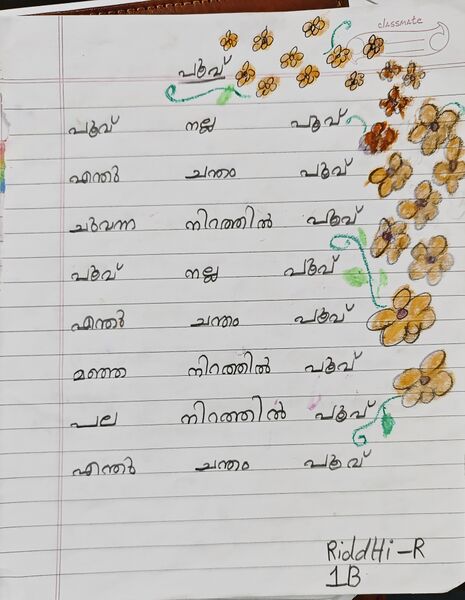 classmate
പൂവ്
പൂവ് നല്ല പൂവ്
എന്തു ചന്തം പൂവ്
ചുവന്ന നിറത്തിൽ പൂവ്
പൂവ് നല്ല പൂവ്
എന്തു ചന്തം പൂവ്
മഞ്ഞ നിറത്തിൽ പൂവ്
പല നിറത്തിൽ പൂവ്
എന്തു ചന്തം പൂവ്
RiddHi - R
1B